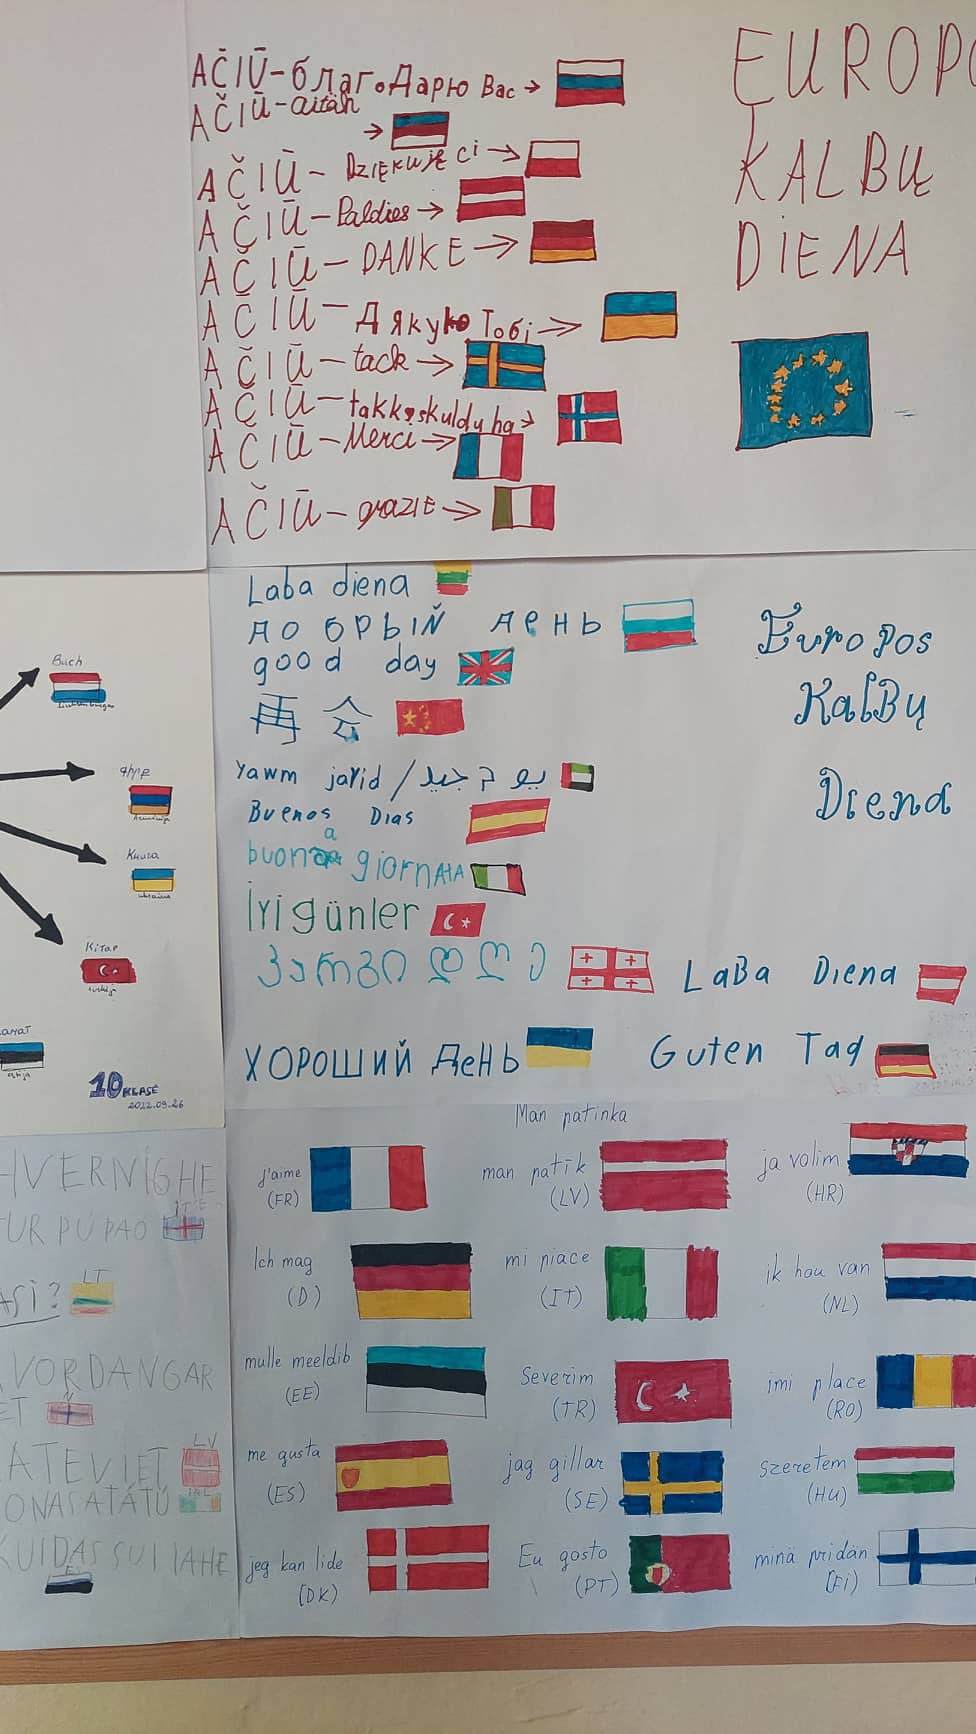 AČIŪ-благоДарю Вас →
AČIŪ-aitäh
→
AČIŪ- DZIĘKUJĘ ci →
AČIŪ-Paldies →
AČIŪ- DANKE →
AČIŪ- Дякую Тобі →
AČIŪ-tack →
AČIŪ-takk skuldu ha →
AČIŪ-Merci →
AČIŪ- grazie →
EUROPO
KALBŲ
DIENA
Laba diena
добрый день
good day
再会
Yawm jayid /
Buenos Dias
giornAtA
İyi günler
ᲙᲐᲠᲒᲘ ᲓᲦᲔ
LaBa Diena
ХОРОШИЙ ДеНЬ
Guten Tag
Europos
KalBų
Diena
Buch
գիրք
Книга
Kitap
10 KLASĖ
2022.09.26
HVERNIGHE
TUR PÚ PAÐ
LT
ASI?
VORDANGAR
ET
ATEVIET
LV
IRL
ONASATÁTÚ
KUIDAS SUL LÄHE
Man patinka
j'aime
(FR)
man patīk
(LV)
ja volim
(HR)
Ich mag
(D)
mi piace
(IT)
ik hou van
(NL)
mulle meeldib
(EE)
Severim
(TR)
imi place
(RO)
me gusta
(ES)
jag gillar
(SE)
szeretem
(HU)
jeg kan lide
(DK)
Eu gosto
(PT)
minä pridän
(Fi)